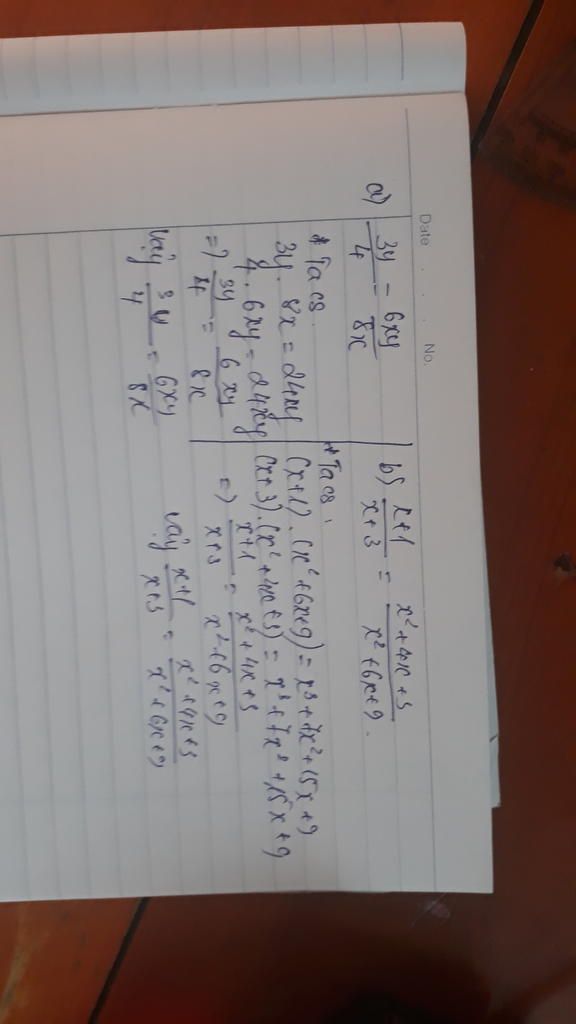 Date . . . . No.
a) 3y/4 = 6xy/8x
* Ta có:
3y . 8x = 24xy
4 . 6xy = 24xy
=> 3y/4 = 6xy/8x
Vậy 3y/4 = 6xy/8x
b) x+1/x+3 = x²+4x+3/x²+6x+9.
* Ta có:
(x+1) . (x²+6x+9) = x³+7x²+15x+9
(x+3) . (x²+4x+3) = x³+7x²+15x+9
=> x+1/x+3 = x²+4x+3/x²+6x+9
Vậy x+1/x+3 = x²+4x+3/x²+6x+9